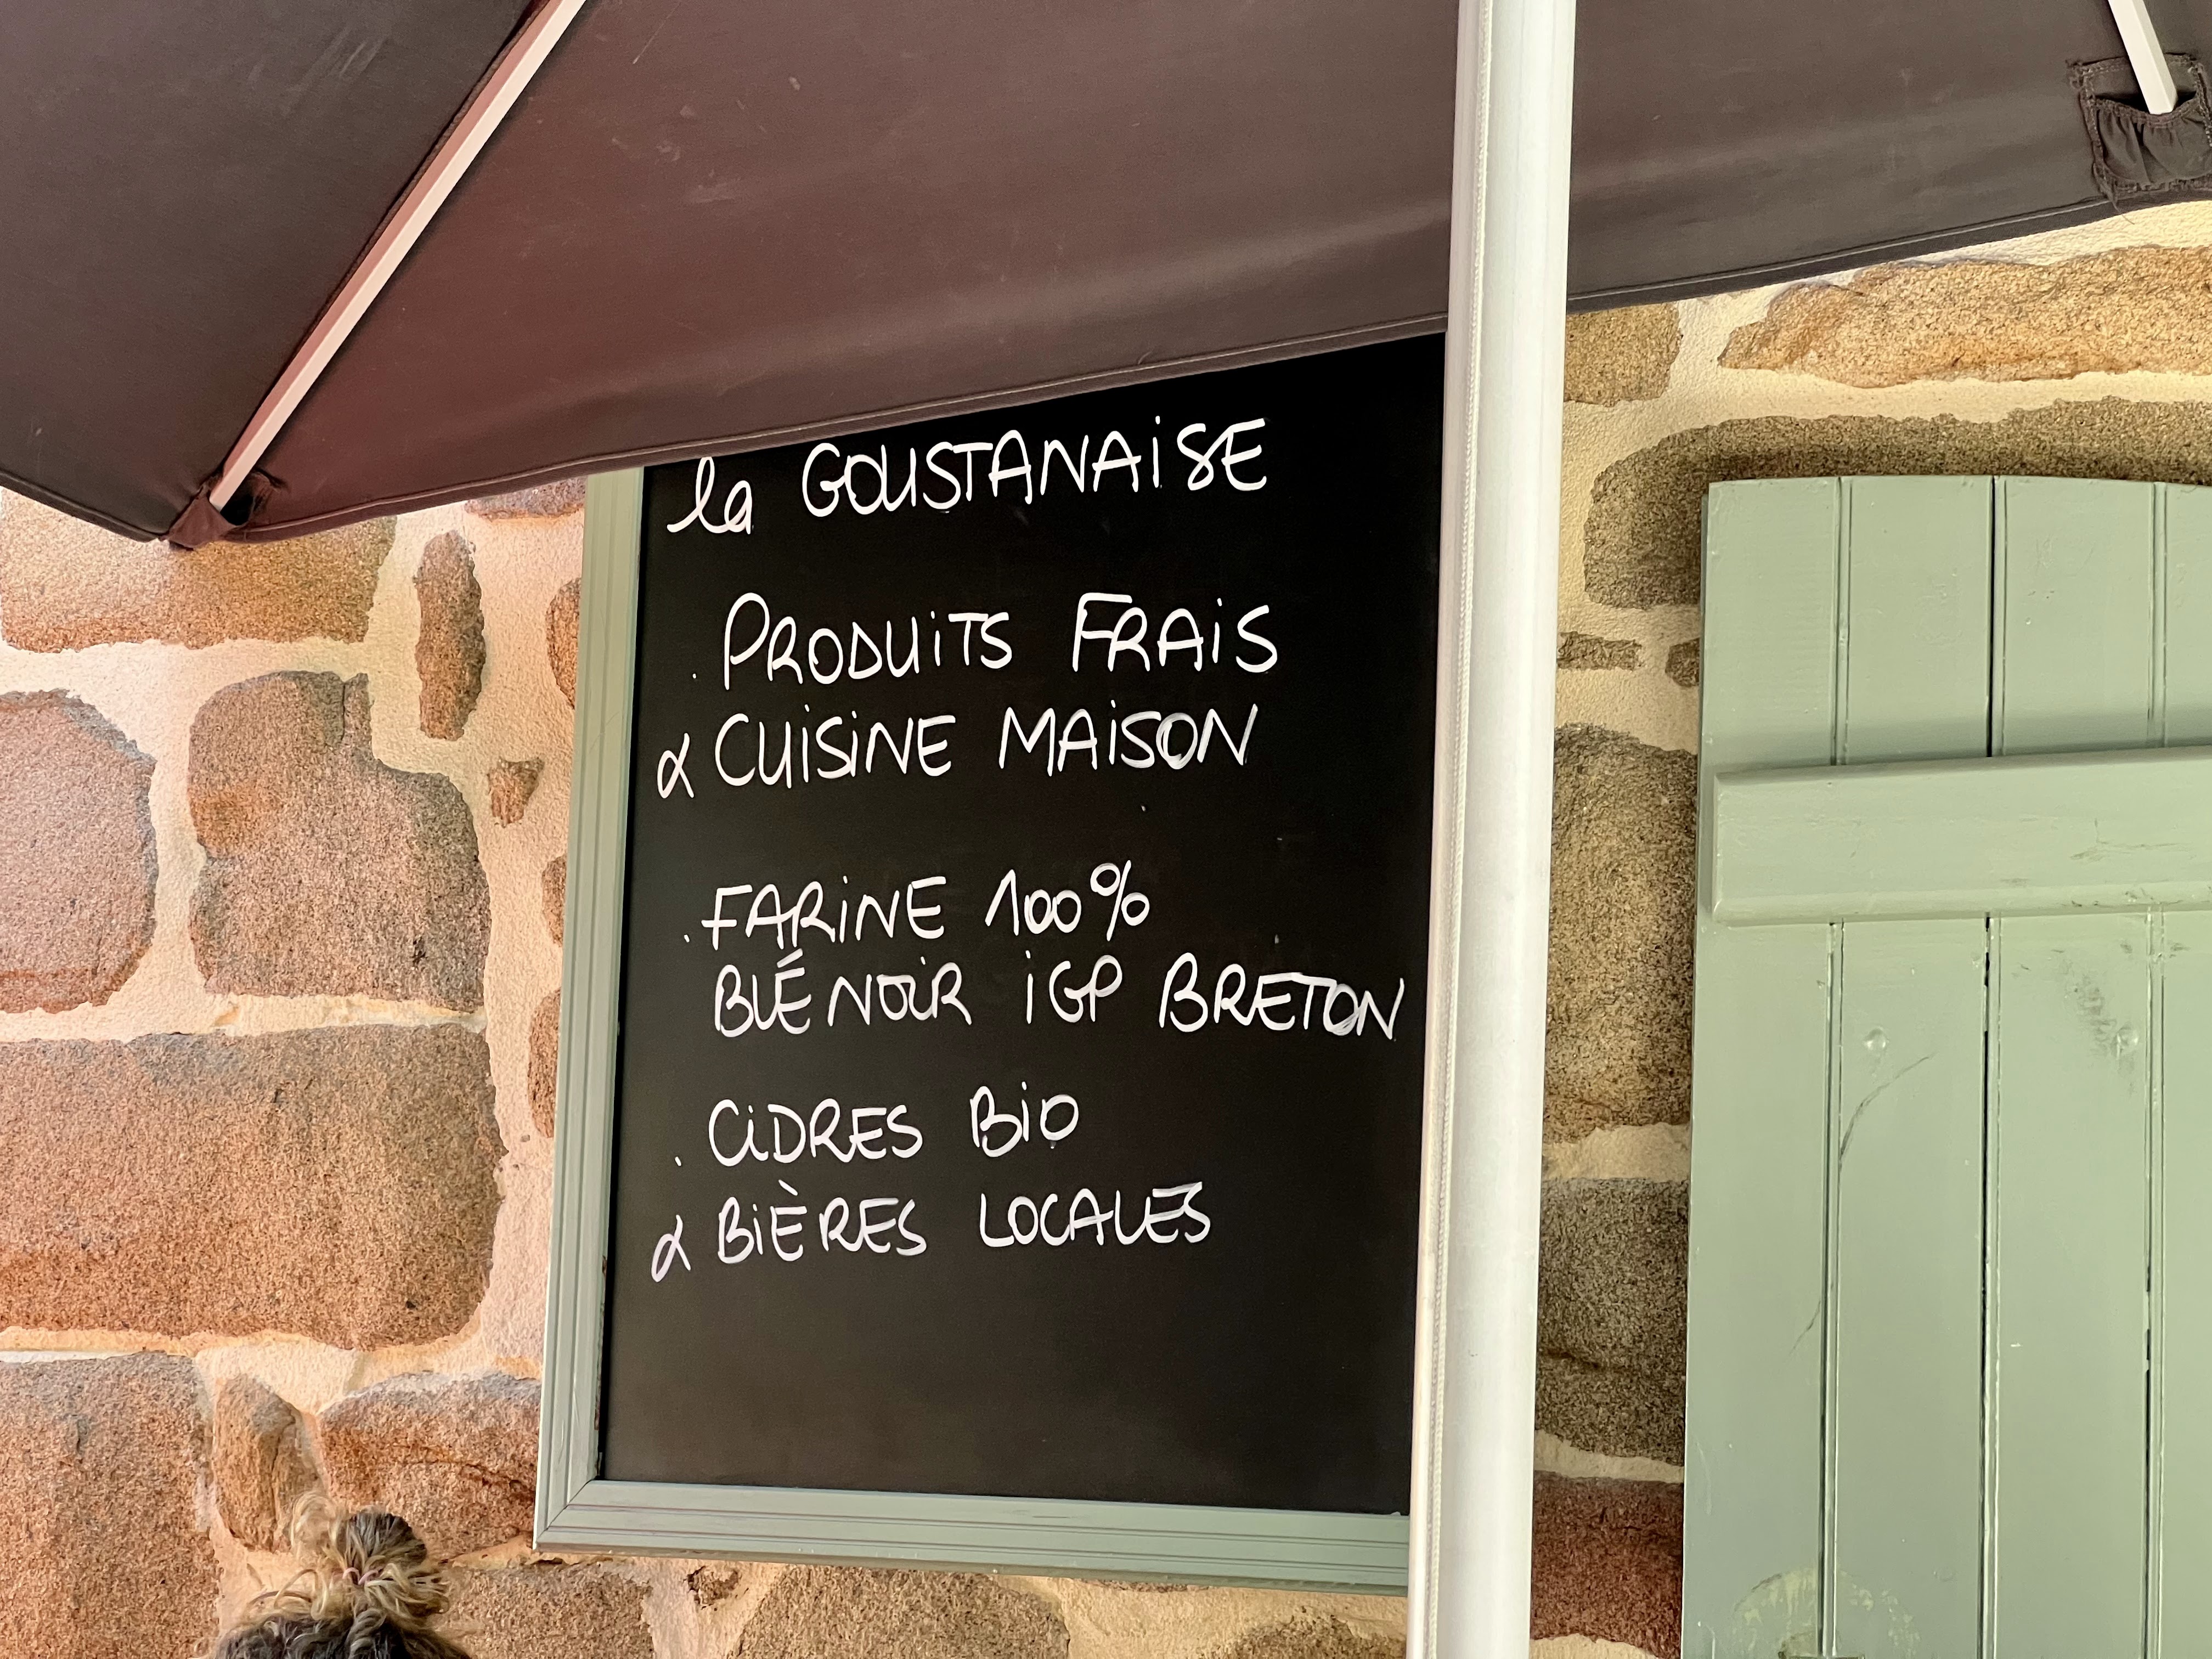 la GOUSTANAiSE
. PRODUiTS FRAiS
& CUiSiNE MAiSON
. FARiNE 100%
BLÉ NOiR iGP BRETON
. CiDRES BiO
& BiÈRES LOCALES